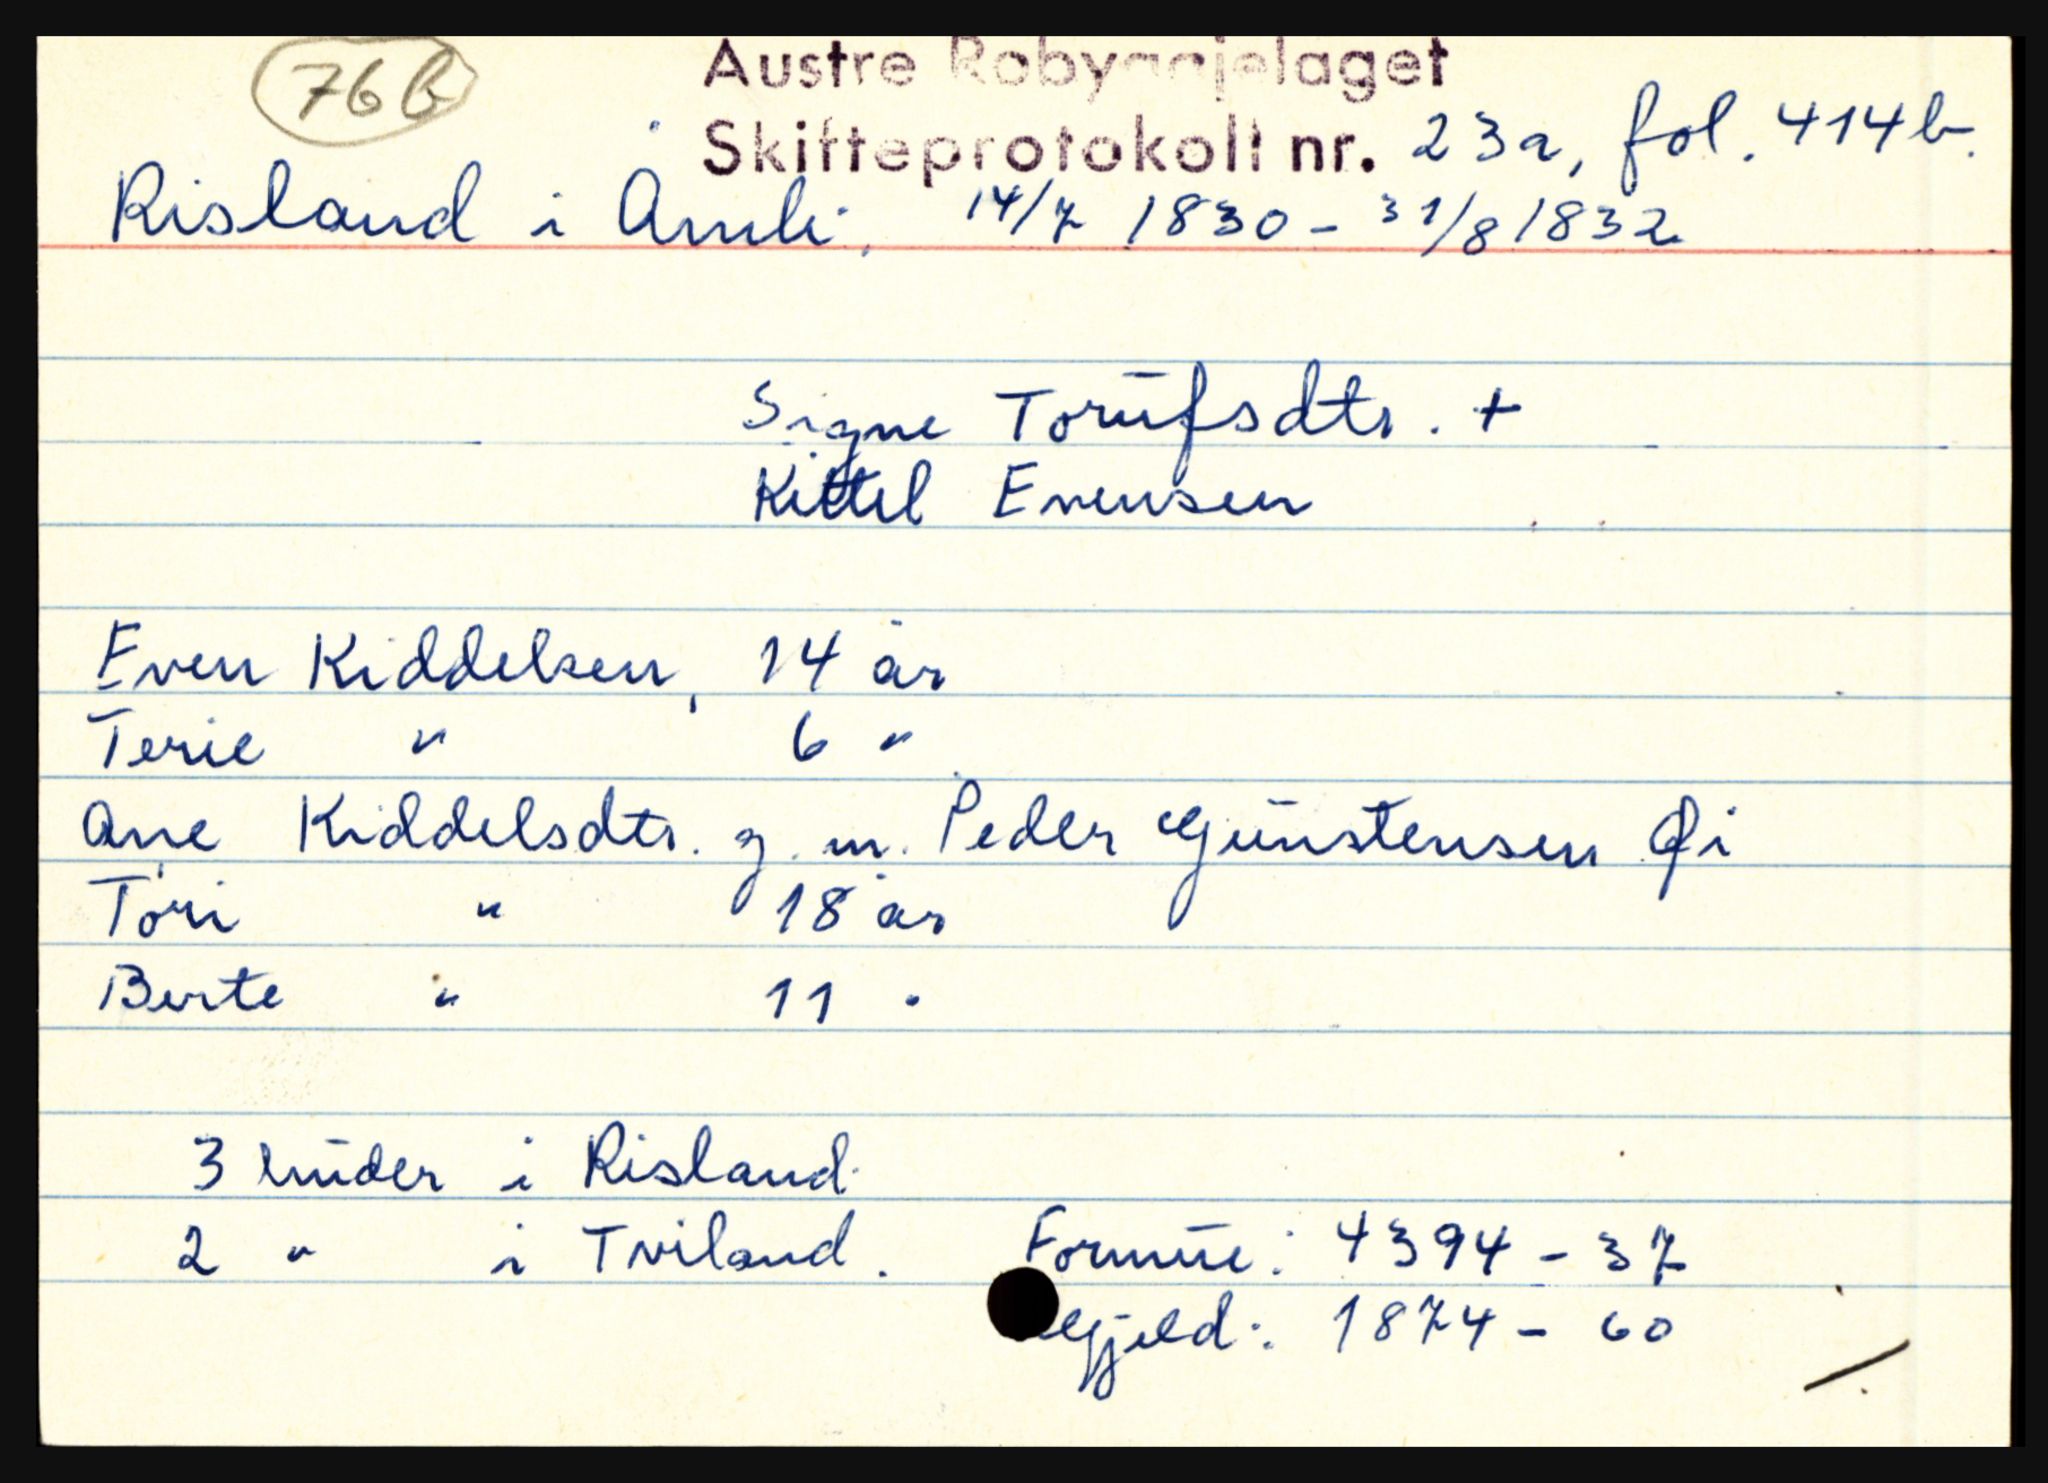 76b
Austre Robyggjelaget
Skifteprotokoll nr. 23a, fol. 414b.
Risland i Åmli, 14/7 1830 - 31/8 1832
Signe Torufsdtr. +
Kittel Evensen
Even Kiddelsen, 14 år
Terie " 6 "
Ane Kiddelsdtr. g. m. Peder Gunstensen Øi
Tori " 18 år
Berte " 11 "
3 huder i Risland
2 " i Tviland. Formue: 4394 - 37
Gjeld: 1874 - 60